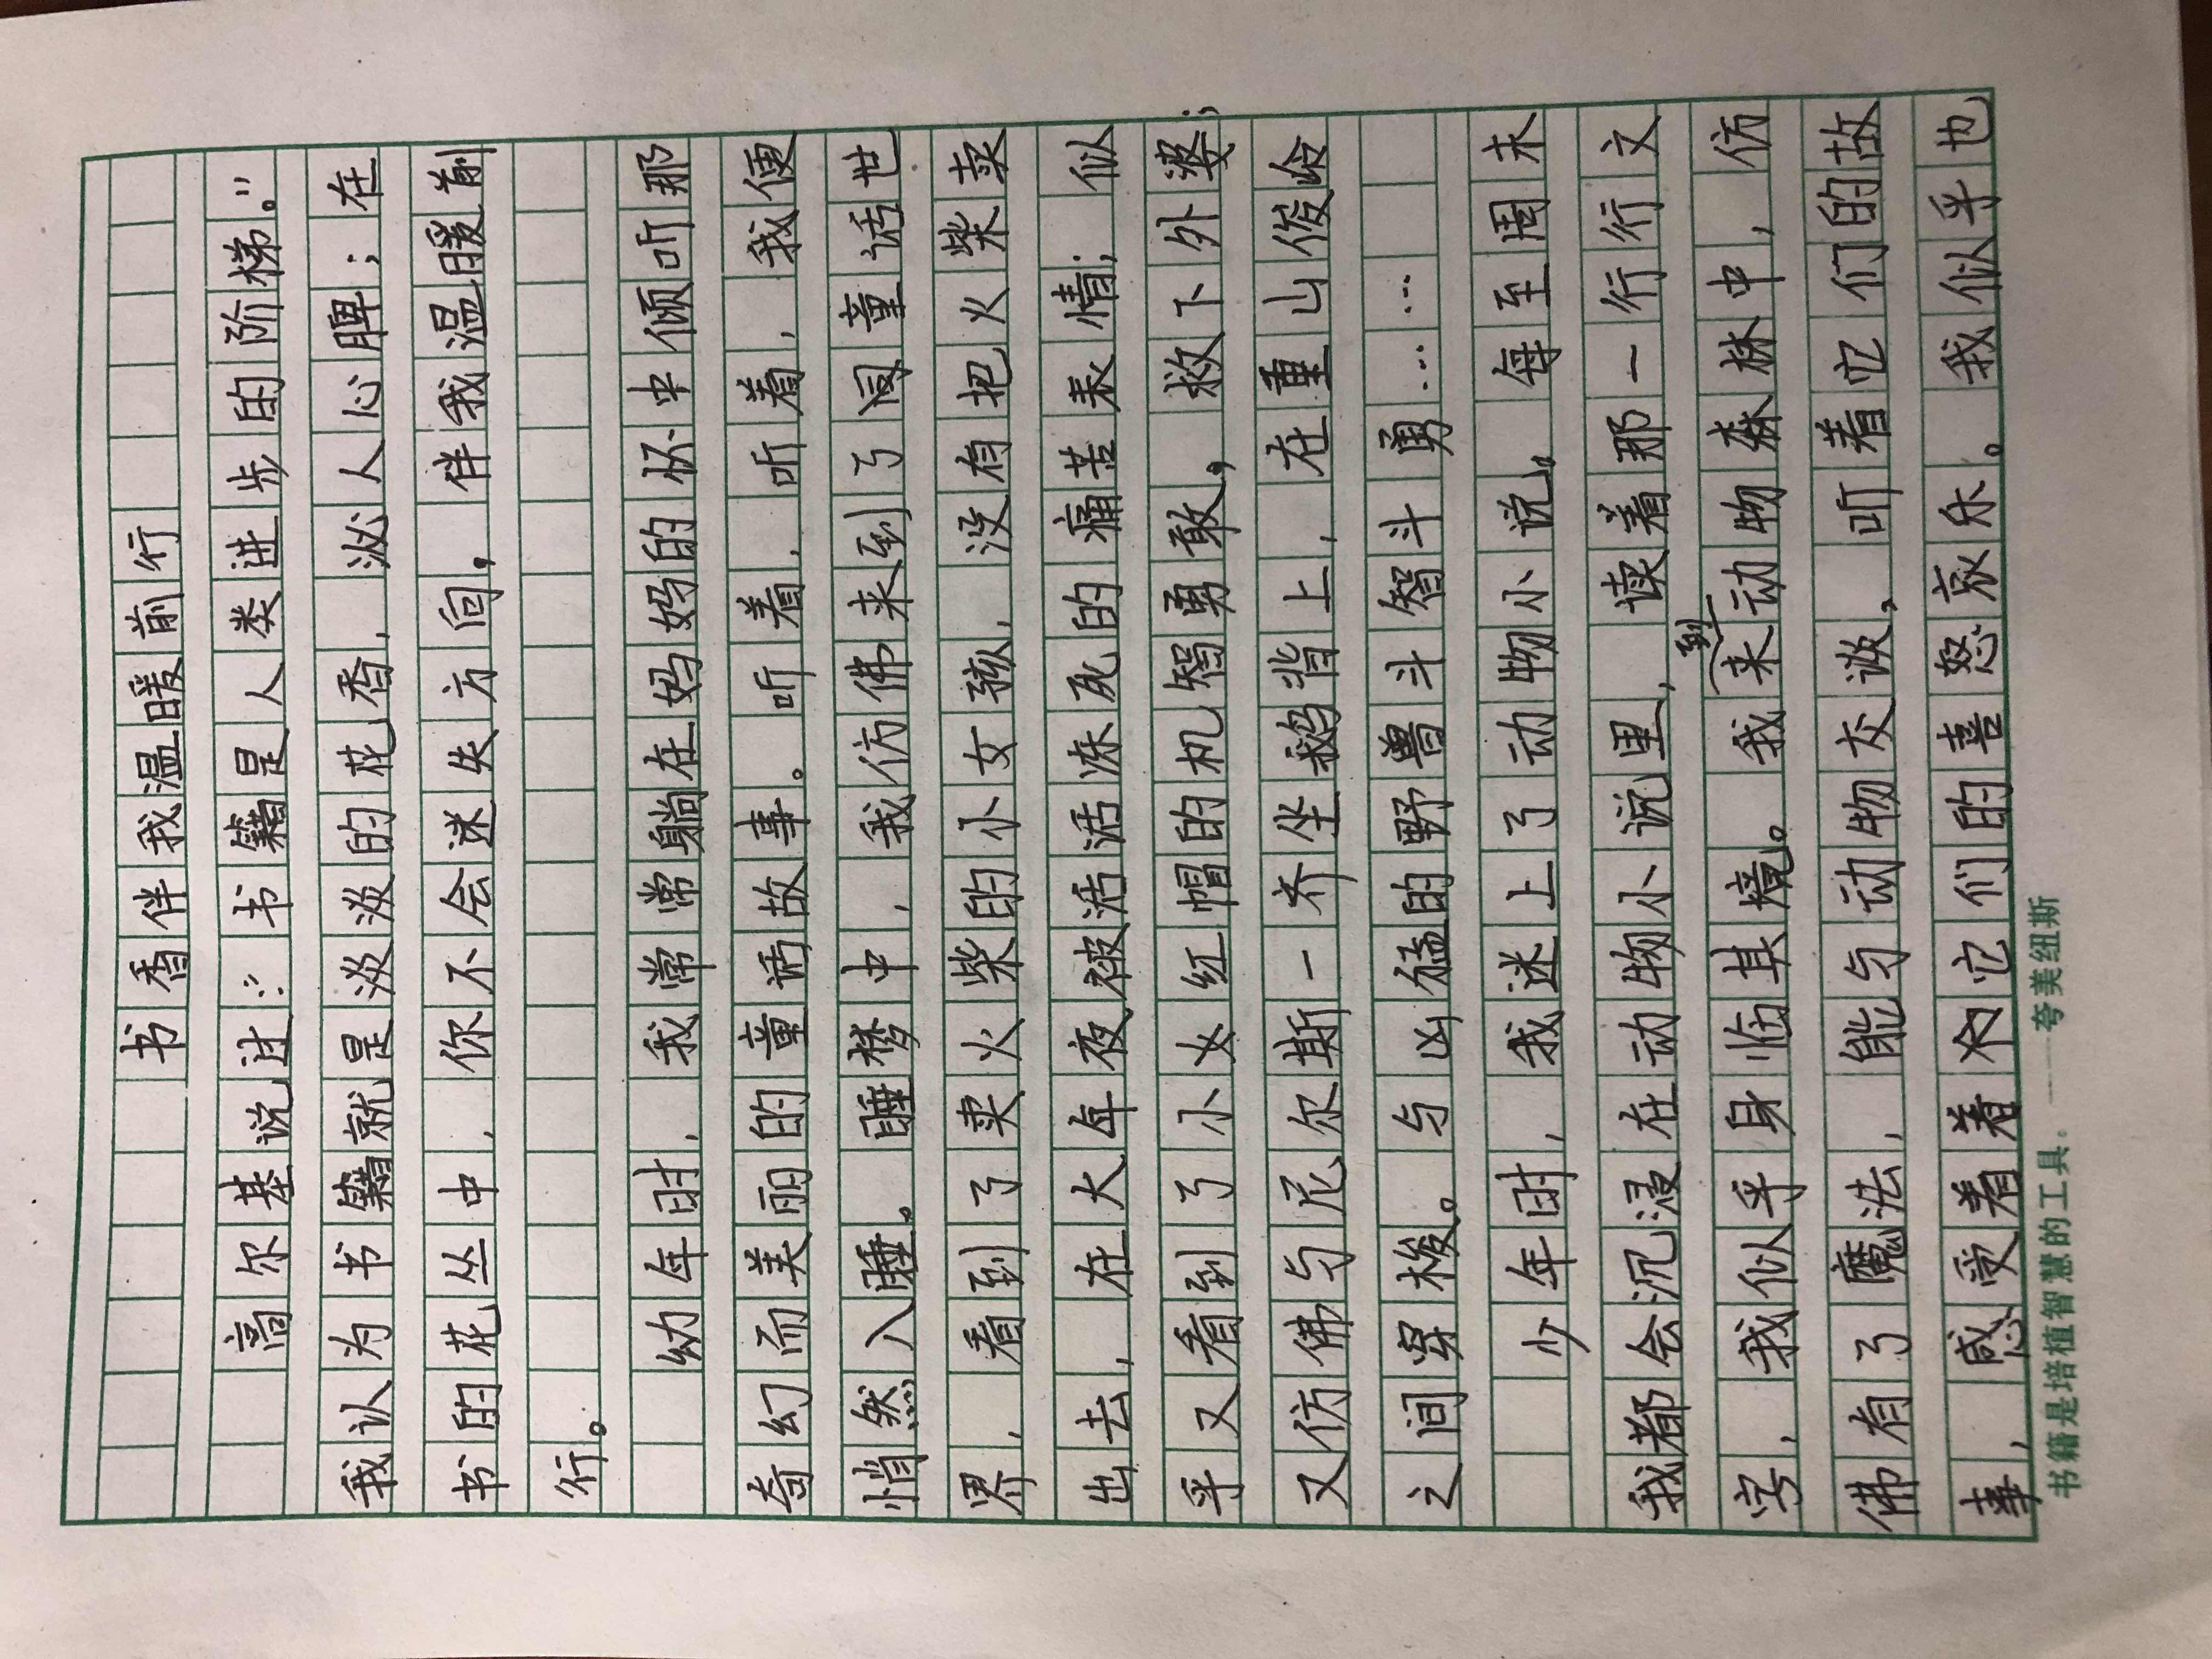 书香伴我温暖前行
高尔基说过:“书籍是人类进步的阶梯。”
我认为书籍就是淡淡的花香,泌人心脾;在
书的花丛中,你不会迷失方向,伴我温暖前
行。
幼年时,我常常躺在妈妈的怀中倾听那
奇幻而美丽的童话故事。听着,听着,我便
悄然入睡。睡梦中,我仿佛来到了阅童话世
界,看到了卖火柴的小女孩,没有把火柴卖
出去,在大年夜被活活冻死的痛苦表情;似
乎又看到了小女红帽的机智勇敢,救下外婆;
又仿佛与尼尔斯一齐坐鹅背上,在重山俊岭
之间穿梭。与凶猛的野兽斗智斗勇……
少年时,我迷上了动物小说。每至周末
我都会沉浸在动物小说里,读着那一行行文
字,我似乎身临其境。我来到动物森林中,仿
佛有了魔法,能与动物交谈,听着它们的故
事,感受着着它们的喜怒哀乐。我似乎也
书籍是培植智慧的工具。——夸美纽斯